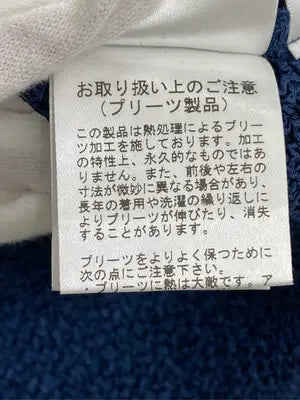 お取り扱い上のご注意
(プリーツ製品)
この製品は熱処理によるプリー
ツ加工を施しております。加工
の特性上、永久的なものではあ
りません。また、前後や左右の
寸法が微妙に異なる場合があり、
長年の着用や洗濯の繰り返しに
よりプリーツが伸びたり、消失
することがあります。
プリーツをよりよく保つために
次の点にご注意下さい。
・プリーツに熱は大敵です。ア